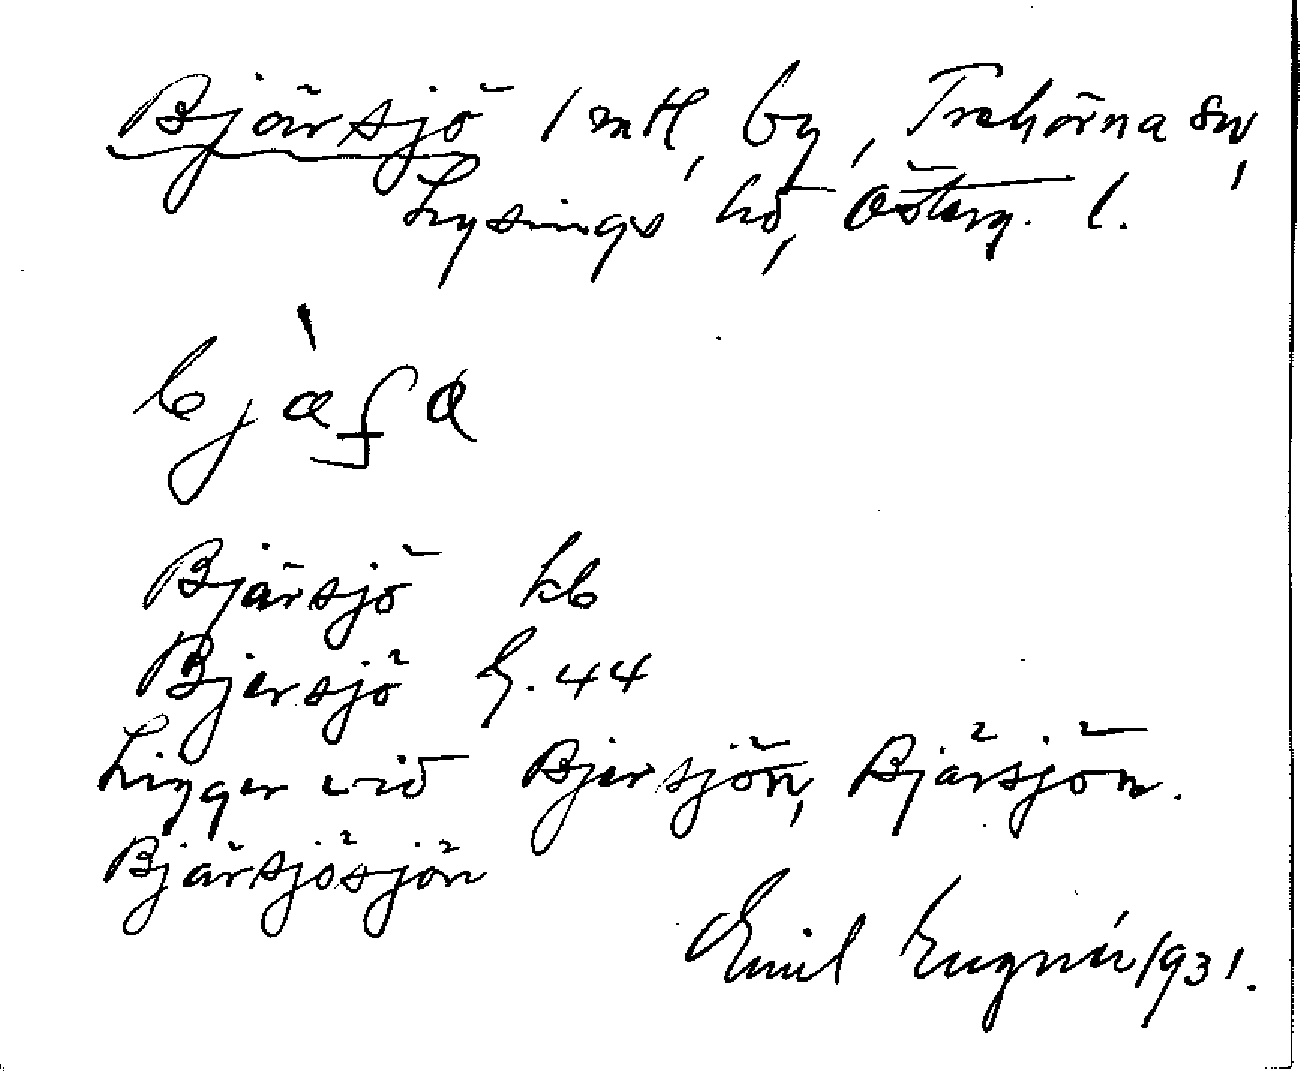 Bjärsjö 1 mtl, by, Trehörna sn,
Lysings hd, Österg. l.
Bjärsjö kb
Bjersjö G. 44
Ligger vid Bjersjön, Bjärsjön.
Bjärsjösjön
Emil 1931.